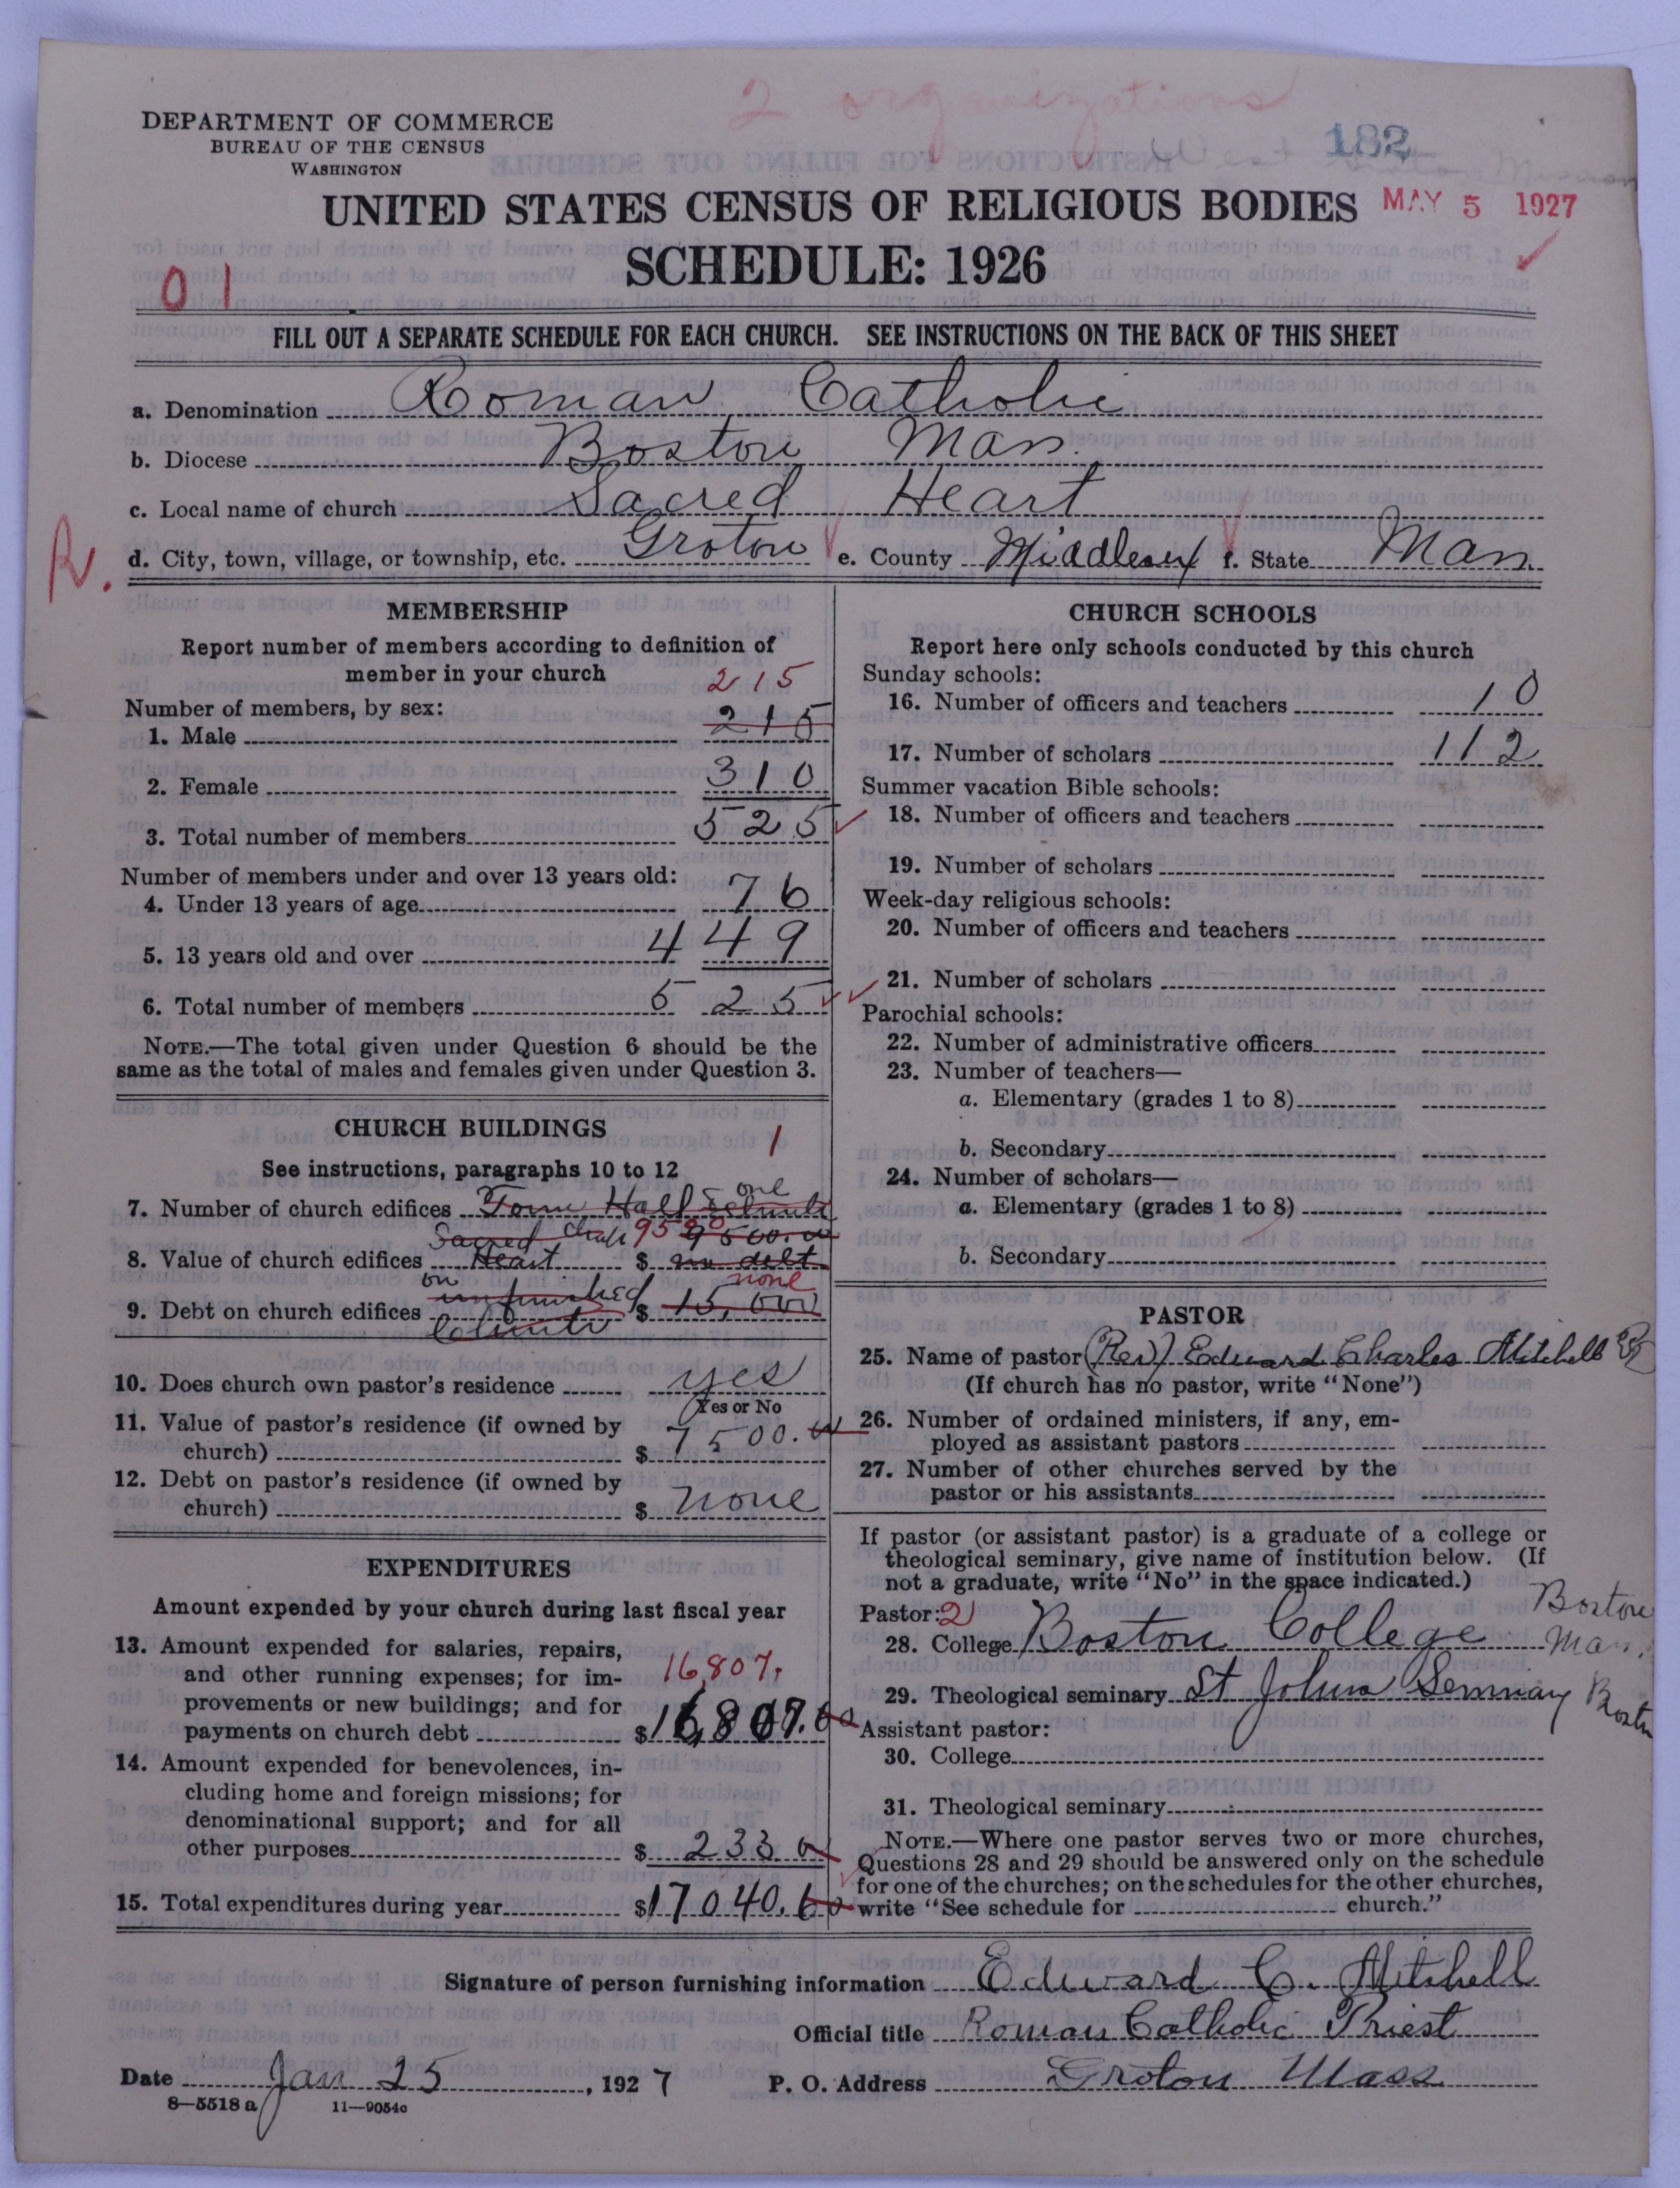 2 organizations
182
West Groton Mission
DEPARTMENT OF COMMERCE
BUREAU OF THE CENSUS
WASHINGTON
UNITED STATES CENSUS OF RELIGIOUS BODIES
MAY 5 1927
SCHEDULE: 1926
01
FILL OUT A SEPARATE SCHEDULE FOR EACH CHURCH. SEE INSTRUCTIONS ON THE BACK OF THIS SHEET
a. Denomination Roman Catholic
b. Diocese Boston Mass.
c. Local name of church Sacred Heart
R. d. City, town, village, or township, etc. Groton e. County Middlesex f. State Mass.
MEMBERSHIP
Report number of members according to definition of
member in your church
215
Number of members, by sex:
1. Male 215
2. Female 310
3. Total number of members 525
Number of members under and over 13 years old:
4. Under 13 years of age 76
5. 13 years old and over 449
6. Total number of members 525
NOTE.—The total given under Question 6 should be the
same as the total of males and females given under Question 3.
CHURCH BUILDINGS
1
See instructions, paragraphs 10 to 12
one
7. Number of church edifices Town Hall
Sacred 9500 9500.00
8. Value of church edifices Heart $ no debt
on none
unfinished
9. Debt on church edifices $ 15,000
10. Does church own pastor's residence yes
Yes or No
11. Value of pastor's residence (if owned by
church) $ 7500.00
12. Debt on pastor's residence (if owned by
church) $ none
EXPENDITURES
Amount expended by your church during last fiscal year
13. Amount expended for salaries, repairs,
and other running expenses; for im-
16,807.
provements or new buildings; and for
payments on church debt $ 16,807.60
14. Amount expended for benevolences, in-
cluding home and foreign missions; for
denominational support; and for all
other purposes $ 233 00
15. Total expenditures during year $ 17040.60
CHURCH SCHOOLS
Report here only schools conducted by this church
Sunday schools:
16. Number of officers and teachers 10
17. Number of scholars 112
Summer vacation Bible schools:
18. Number of officers and teachers
19. Number of scholars
Week-day religious schools:
20. Number of officers and teachers
21. Number of scholars
Parochial schools:
22. Number of administrative officers
23. Number of teachers—
a. Elementary (grades 1 to 8)
b. Secondary
24. Number of scholars—
a. Elementary (grades 1 to 8)
b. Secondary
PASTOR
25. Name of pastor (Rev) Edward Charles Mitchell
(If church has no pastor, write "None")
26. Number of ordained ministers, if any, em-
ployed as assistant pastors
27. Number of other churches served by the
pastor or his assistants
If pastor (or assistant pastor) is a graduate of a college or
theological seminary, give name of institution below. (If
not a graduate, write "No" in the space indicated.)
Pastor: 2
28. College Boston College Boston Mass.
29. Theological seminary St Johns Seminary Boston
Assistant pastor:
30. College
31. Theological seminary
NOTE.—Where one pastor serves two or more churches,
Questions 28 and 29 should be answered only on the schedule
for one of the churches; on the schedules for the other churches,
write "See schedule for church."
Signature of person furnishing information Edward C. Mitchell
Official title Roman Catholic Priest
Date Jan 25, 1927 P. O. Address Groton Mass
8—5518 a 11—9054c